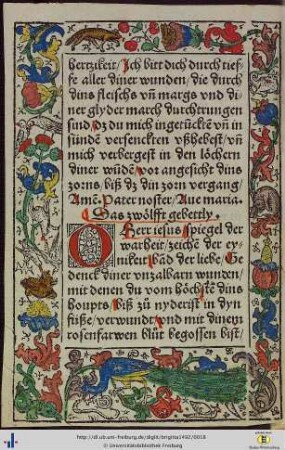 hertzikeit/ Jch bitt dich durch tieff-
fe aller diner wunden/ die durch
dins fleischs vn̄ margs vnd di-
ner glyder march durchtrungen
sind/ dz du mich ingetuckte vn̄ in
sünde versencken vßhebest/ vn̄
mich verbergest in den löchern
diner wūdē/ vor angesicht dins
zorns/ biß dz din zorn vergang/
Amē. Pater noster/ Aue maria.
Das zwölfft gebettly.
O Herr iesus spiegel der
warheit/ zeichē der ey-
nikeit/ bād der liebe/ Ge
denck diner vnzalbarn wunden/
mit denen du vom höchstē dins
houpts/ biß zū nyderist in dyn
füße/ verwundt/ vnd mit dinem
rosenfarwen blūt begossen bist/
http://dl.ub.uni-freiburg.de/diglit/brigitta1492/0018
© Universitätsbibliothek Freiburg